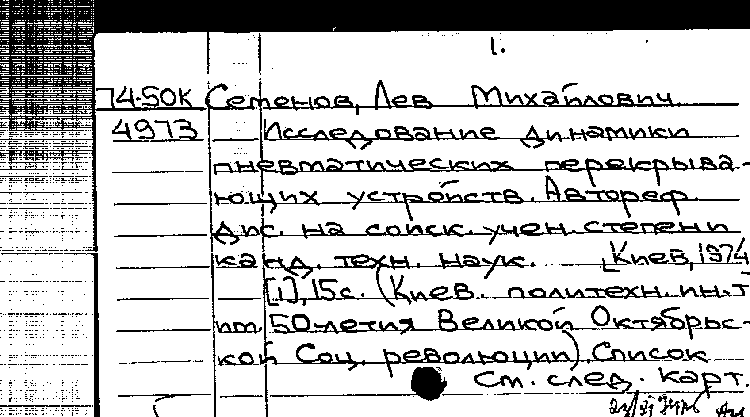 1.
74-50К Семенов, Лев Михайлович
4973 Исследование динамики
пневматических перекрыва-
ющих устройств. Автореф.
дис. на соиск. учен. степени
канд. техн. наук. [Киев, 1974
[1], 15с. (Киев. политехн. ин-т
им. 50-летия Великой Октябрьс-
кой Соц. революции). Список
См. след. карт.